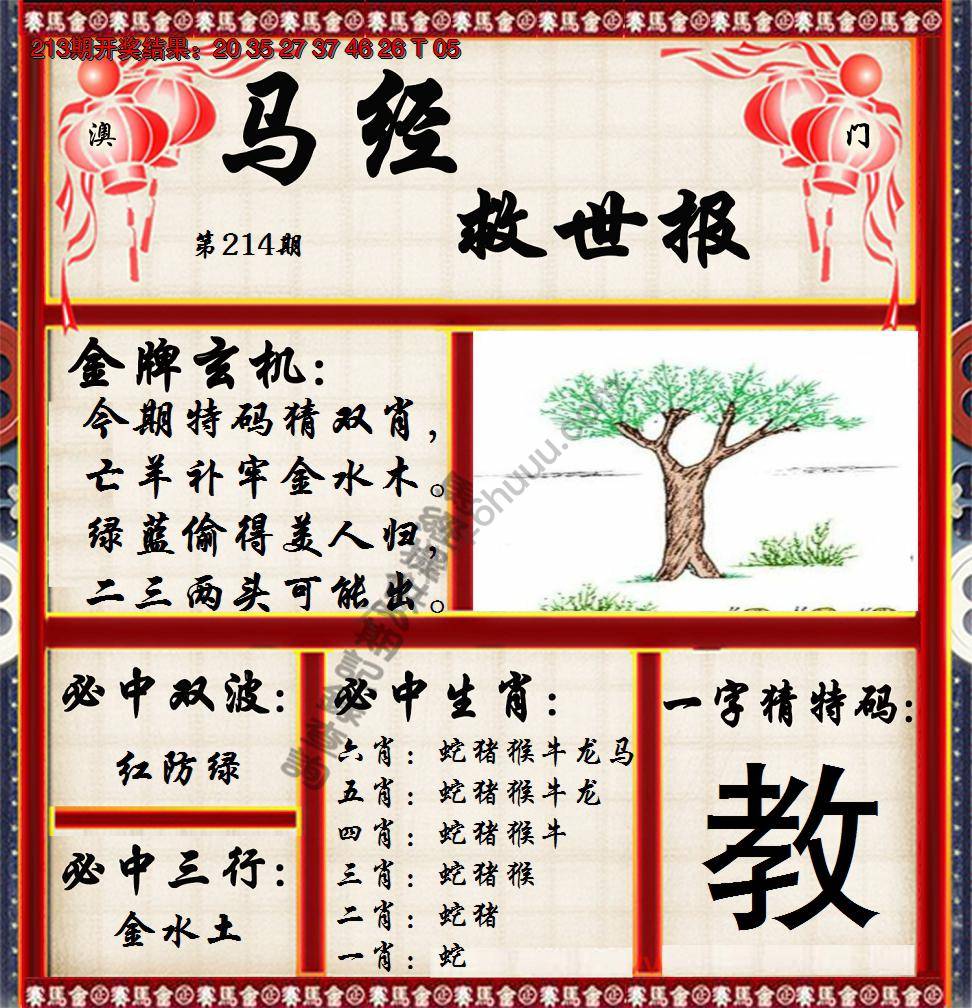 213期开奖结果：20 35 27 37 46 26 T 05
澳
门
马经
救世报
第214期
金牌玄机：
今期特码猜双肖，
亡羊补牢金水木。
绿蓝偷得美人归，
二三两头可能出。
必中双波：
红防绿
必中三行：
金水土
必中生肖：
六肖：蛇猪猴牛龙马
五肖：蛇猪猴牛龙
四肖：蛇猪猴牛
三肖：蛇猪猴
二肖：蛇猪
一肖：蛇
一字猜特码：
教